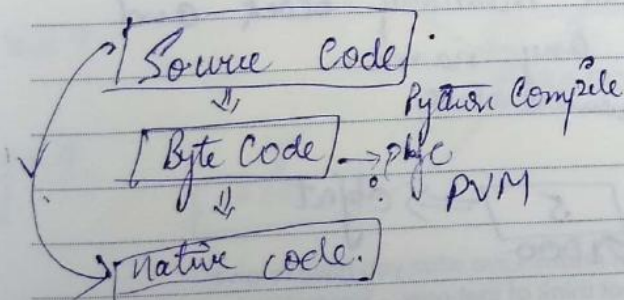 Source Code
Python Compile
Byte Code → pyc
PVM
native code.